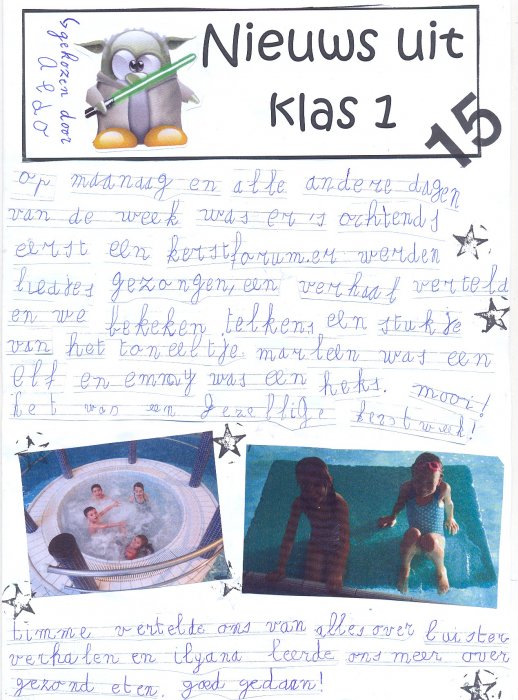 ↳ gekozen door
Aldo
Nieuws uit
klas 1
15
op maanaag en alle andere dagen
van de week was er 's ochtends
eerst een kerstforum.er werden
liedjes gezongen, een verhaal verteld
en we bekeken telkens een stukje
van het toneeltje. marleen was een
elf en emmy was een heks. mooi!
het was een gezellige kerstweek!
timme vertelde ons van alles over luister
verhalen en ilyana leerde ons meer over
gezond eten. goed gedaan!